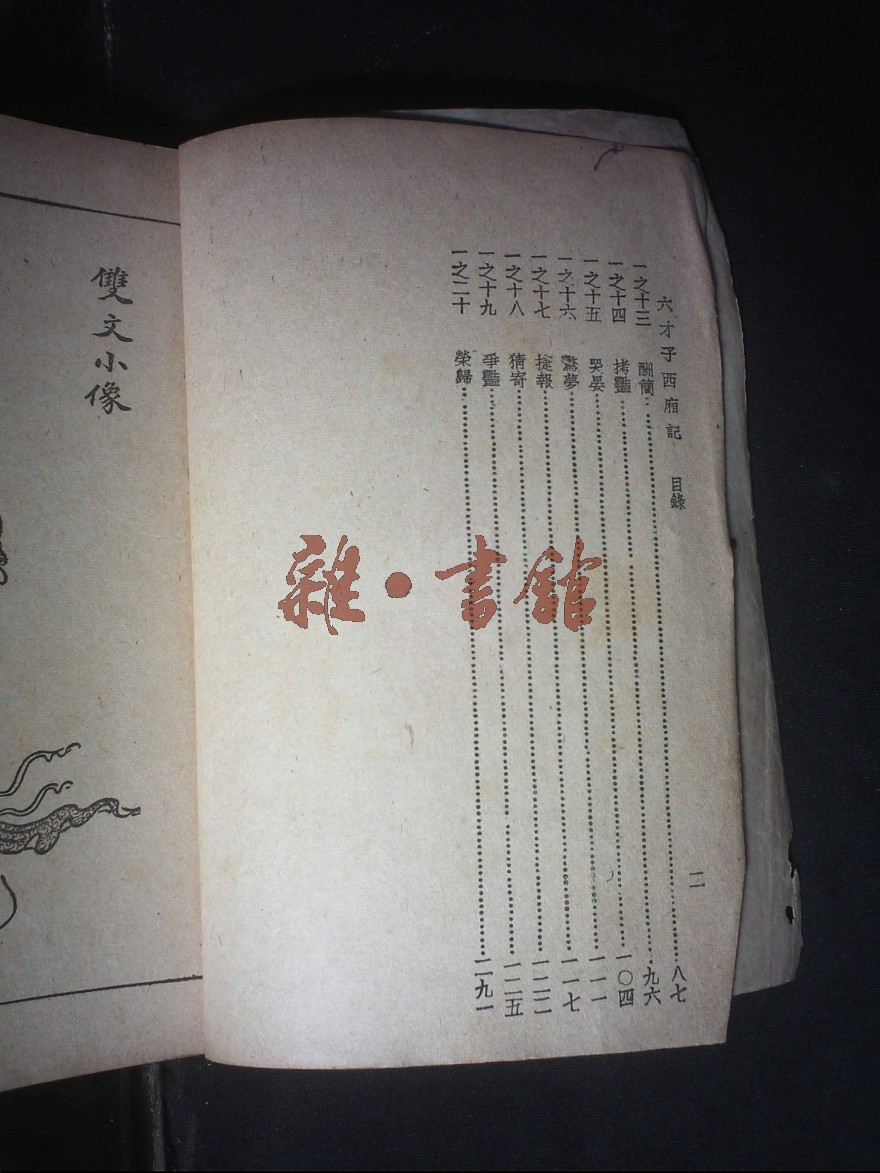 六才子西廂記 目錄 二
一之十三 酬簡 八七
一之十四 拷豔 九六
一之十五 哭晏 一〇四
一之十六 驚夢 一一一
一之十七 捷報 一一七
一之十八 猜寄 一二二
一之十九 爭豔 一二五
一之二十 榮歸 二九一
雙文小像
雜·書館